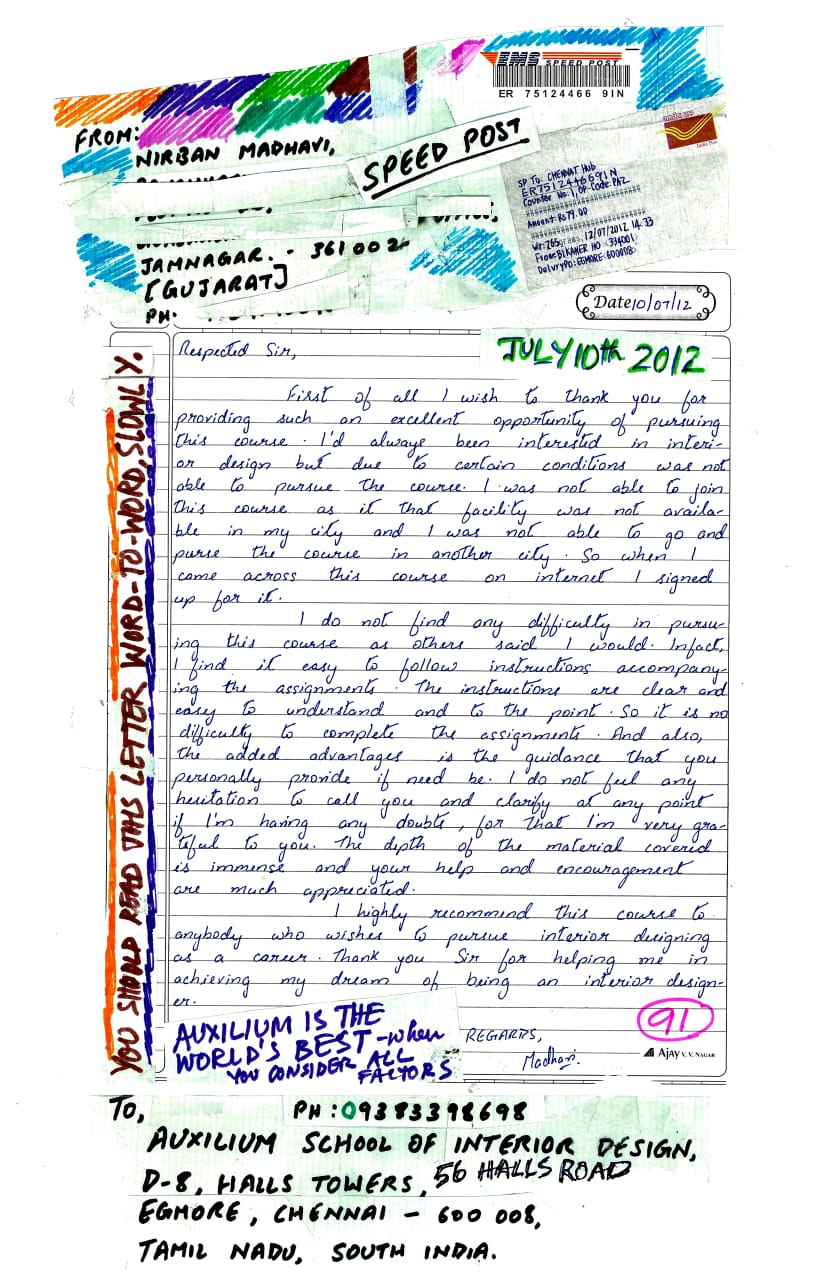 EMS SPEED POST
ER 75124466 9IN
FROM:
NIRBAN MADHAVI,
SPEED POST
JAMNAGAR. - 361002
[GUJARAT]
PH.
India Post
SP To: CHENNAI Hub
ER751244669IN
Counter No: 1, OP-Code: PA2
Amount: Rs79.00
Wt: 265grams, 12/07/2012, 14:33
From: BIKANER HO (334001)
DelvryPO: EGMORE, 600008
Date 10/07/12
Respected Sir,
JULY 10th 2012
First of all I wish to thank you for
providing such an excellent opportunity of pursuing
this course. I'd always been interested in interi-
or design but due to certain conditions was not
able to pursue the course. I was not able to join
this course as it that facility was not availa-
ble in my city and I was not able to go and
purse the course in another city. So when I
came across this course on internet I signed
up for it.
I do not find any difficulty in pursu-
ing this course as others said I would. Infact,
I find it easy to follow instructions accompany-
ing the assignments. The instructions are clear and
easy to understand and to the point. So it is no
difficulty to complete the assignments. And also,
the added advantages is the guidance that you
personally provide if need be. I do not feel any
hesitation to call you and clarify at any point
if I'm having any doubts, for that I'm very gra-
teful to you. The depth of the material covered
is immense and your help and encouragement
are much appreciated.
I highly recommend this course to
anybody who wishes to pursue interior designing
as a career. Thank you Sir for helping me in
achieving my dream of being an interior design-
er.
YOU SHOULD READ THIS LETTER WORD-TO-WORD, SLOWLY.
AUXILIUM IS THE
WORLD'S BEST - when
YOU CONSIDER ALL
FACTORS
REGARDS,
Madhavi.
91
Ajay V. V. NAGAR
To,
PH: 09383398698
AUXILIUM SCHOOL OF INTERIOR DESIGN,
D-8, HALLS TOWERS, 56 HALLS ROAD
EGMORE, CHENNAI - 600 008,
TAMIL NADU, SOUTH INDIA.